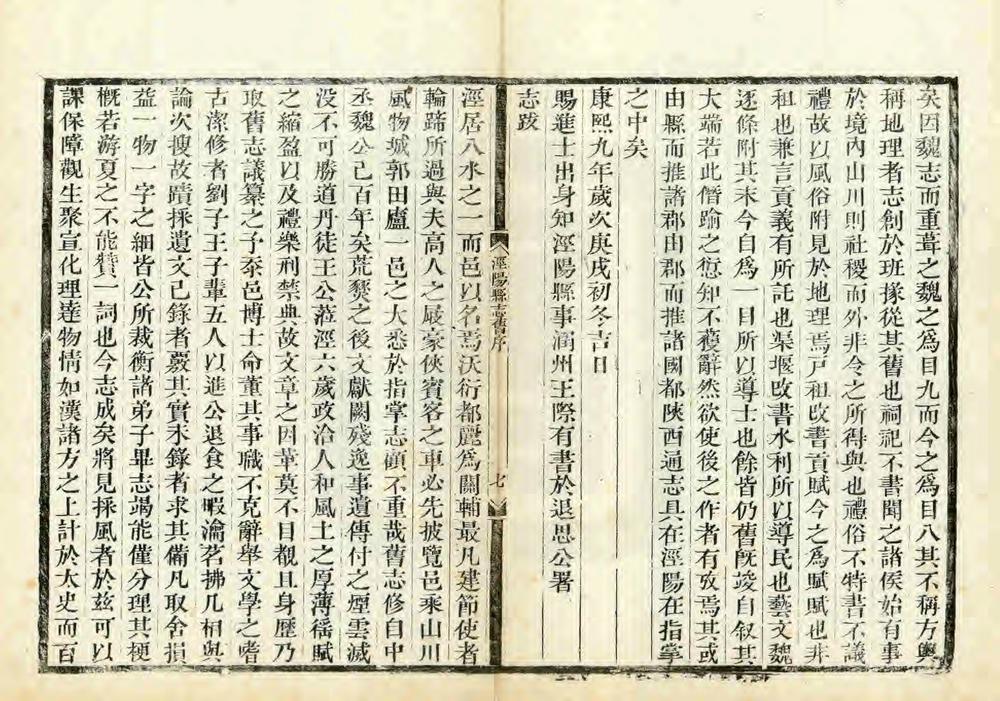 矣因魏志而重葺之魏之爲目九而今之爲目八其不稱方輿
稱地理者志創於班掾從其舊也祠祀不書聞之諸侯始有事
於境內山川則社稷而外非今之所得與也禮俗不特書不議
禮故以風俗附見於地理焉戶租改書貢賦今之爲賦賦也非
租也兼言貢義有所託也渠堰改書水利所以導民也藝文魏
逐條附其末今自爲一目所以導士也餘皆仍舊旣竣自叙其
大端若此僭踰之愆知不獲辭然欲使後之作者有攷焉其或
由縣而推諸郡由郡而推諸國都陝西通志具在涇陽在指掌
之中矣
康熙九年歲次庚戌初冬吉日
賜進士出身知涇陽縣事涿州王際有書於退思公署
志跋
涇陽縣志舊序
七
涇居八水之一而邑以名焉沃衍都麗爲關輔最凡建節使者
輪蹄所過與夫高人之屐豪俠賓客之車必先披覽邑乘山川
風物城郭田廬一邑之大悉於指掌志顧不重哉舊志修自中
丞魏公己百年矣荒燹之後文獻闕殘逸事遺傳付之煙雲滅
没不可勝道丹徒王公蒞涇六歲政洽人和風土之厚薄徭賦
之縮盈以及禮樂刑禁典故文章之因革莫不目覩且身歷乃
取舊志議纂之予忝邑博士命董其事職不克辭舉文學之嗜
古潔修者劉子王子輩五人以進公退食之暇瀹茗拂几相與
論次搜故蹟採遺文己錄者覈其實未錄者求其備凡取舍損
益一物一字之細皆公所裁衡諸弟子畢志竭能僅分理其梗
槪若游夏之不能贊一詞也今志成矣將見採風者於兹可以
課保障觀生聚宣化理達物情如漢諸方之上計於太史而百